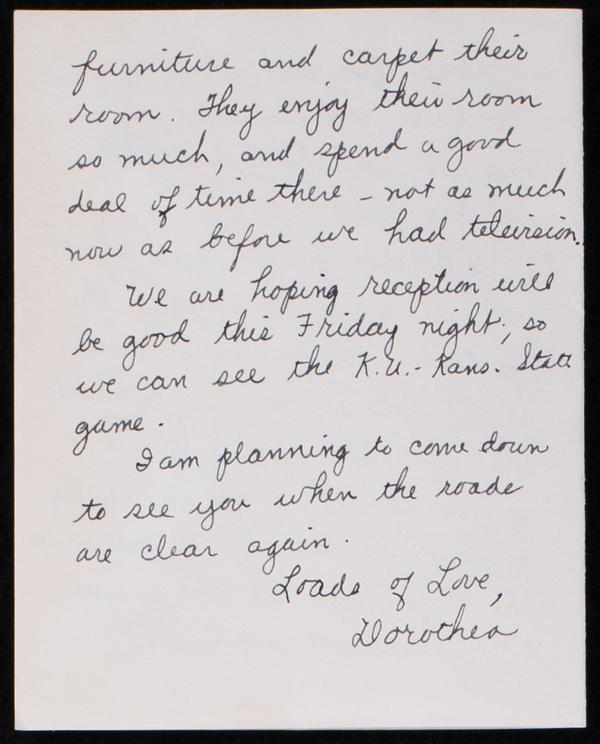 furniture and carpet their
room. They enjoy their room
so much, and spend a good
deal of time there – not as much
now as before we had television.
We are hoping reception will
be good this Friday night, so
we can see the K.U.- Kans. State
game.
I am planning to come down
to see you when the roads
are clear again.
Loads of Love,
Dorothea